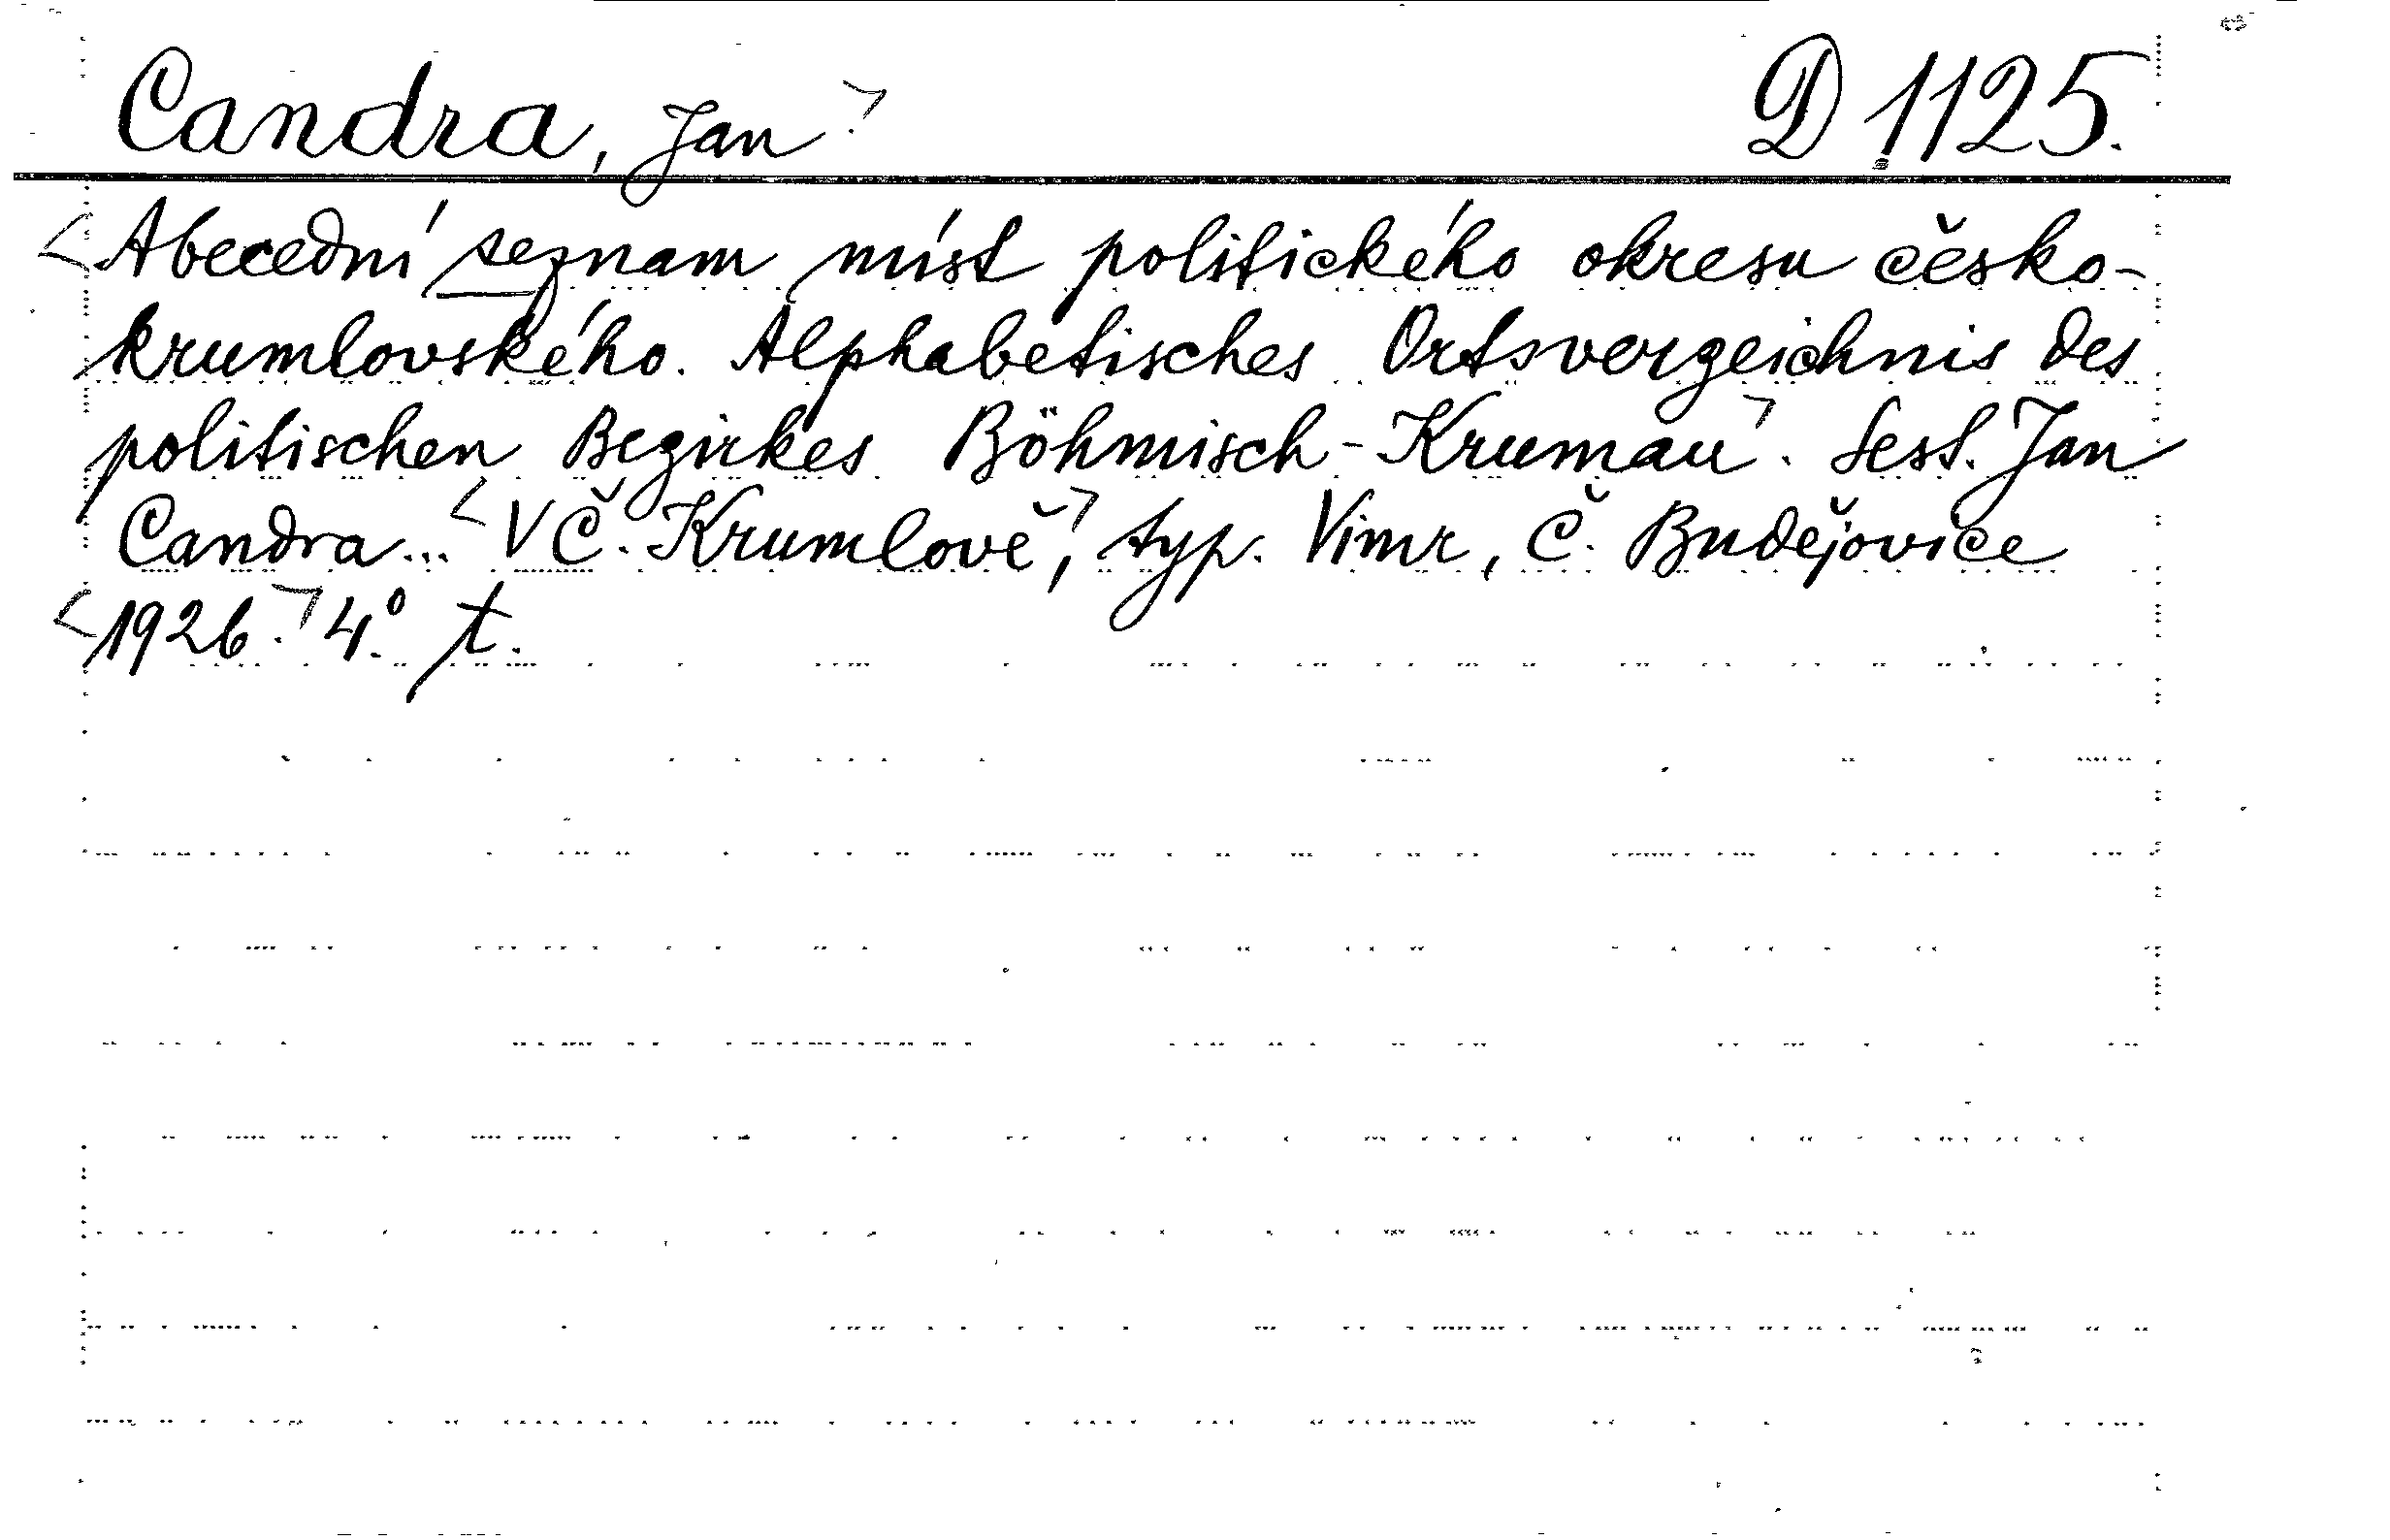 Candra, Jan D 1125.
Abecední seznam míst politického okresu česko-
krumlovského. Alphabetisches Ortsverzeichnis des
politischen Bezirkes Böhmisch-Krumau. Sest. Jan
Candra... V Č. Krumlově, typ. Vimr, Č. Budějovice
1926. 4° t.